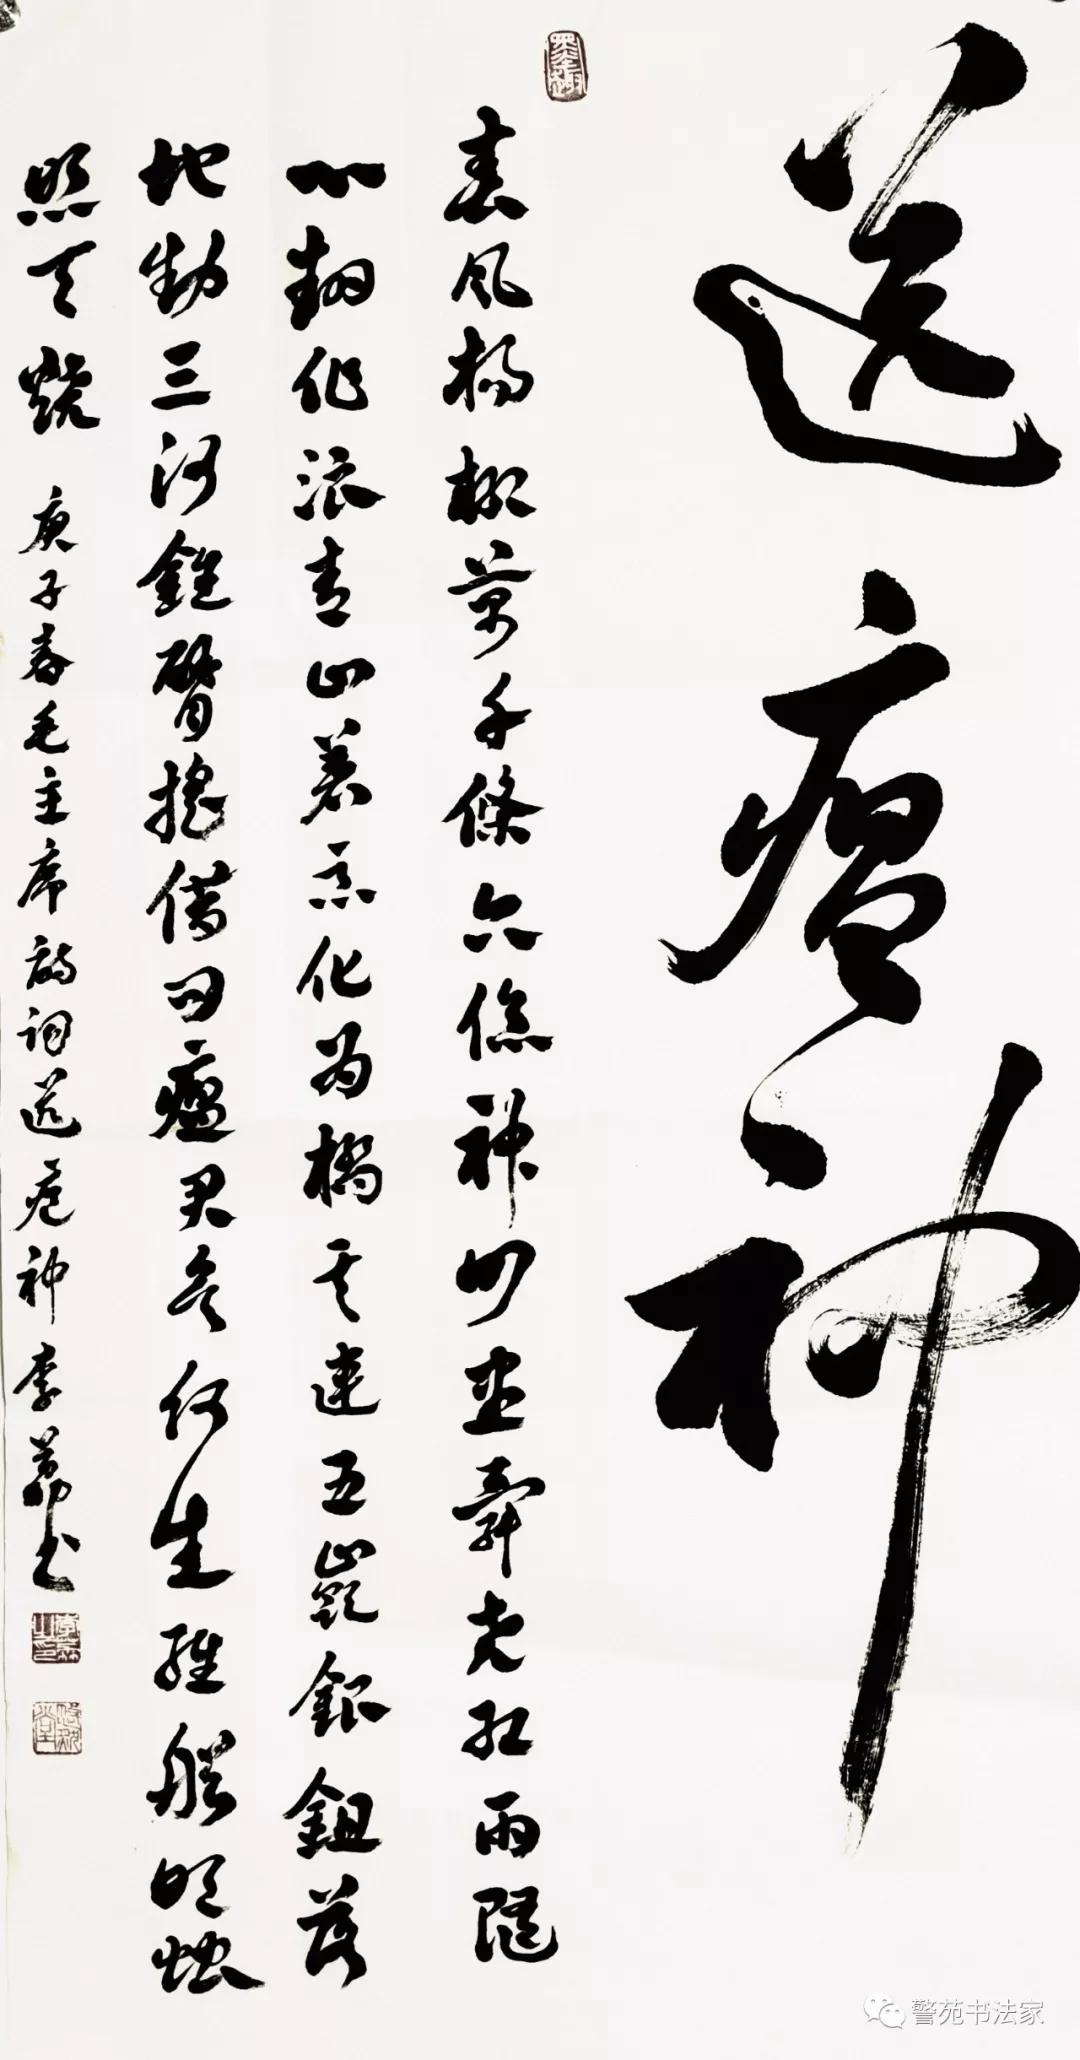 送瘟神
墨趣
春風楊柳萬千條六億神州盡舜尧紅雨隨
心翻作浪青山着意化为橋天連五嶺銀鉏落
地動三河鐵臂搖借问瘟君欲何往紙船明燭
照天燒 庚子春毛主席詩詞送瘟神李荔书
警苑书法家